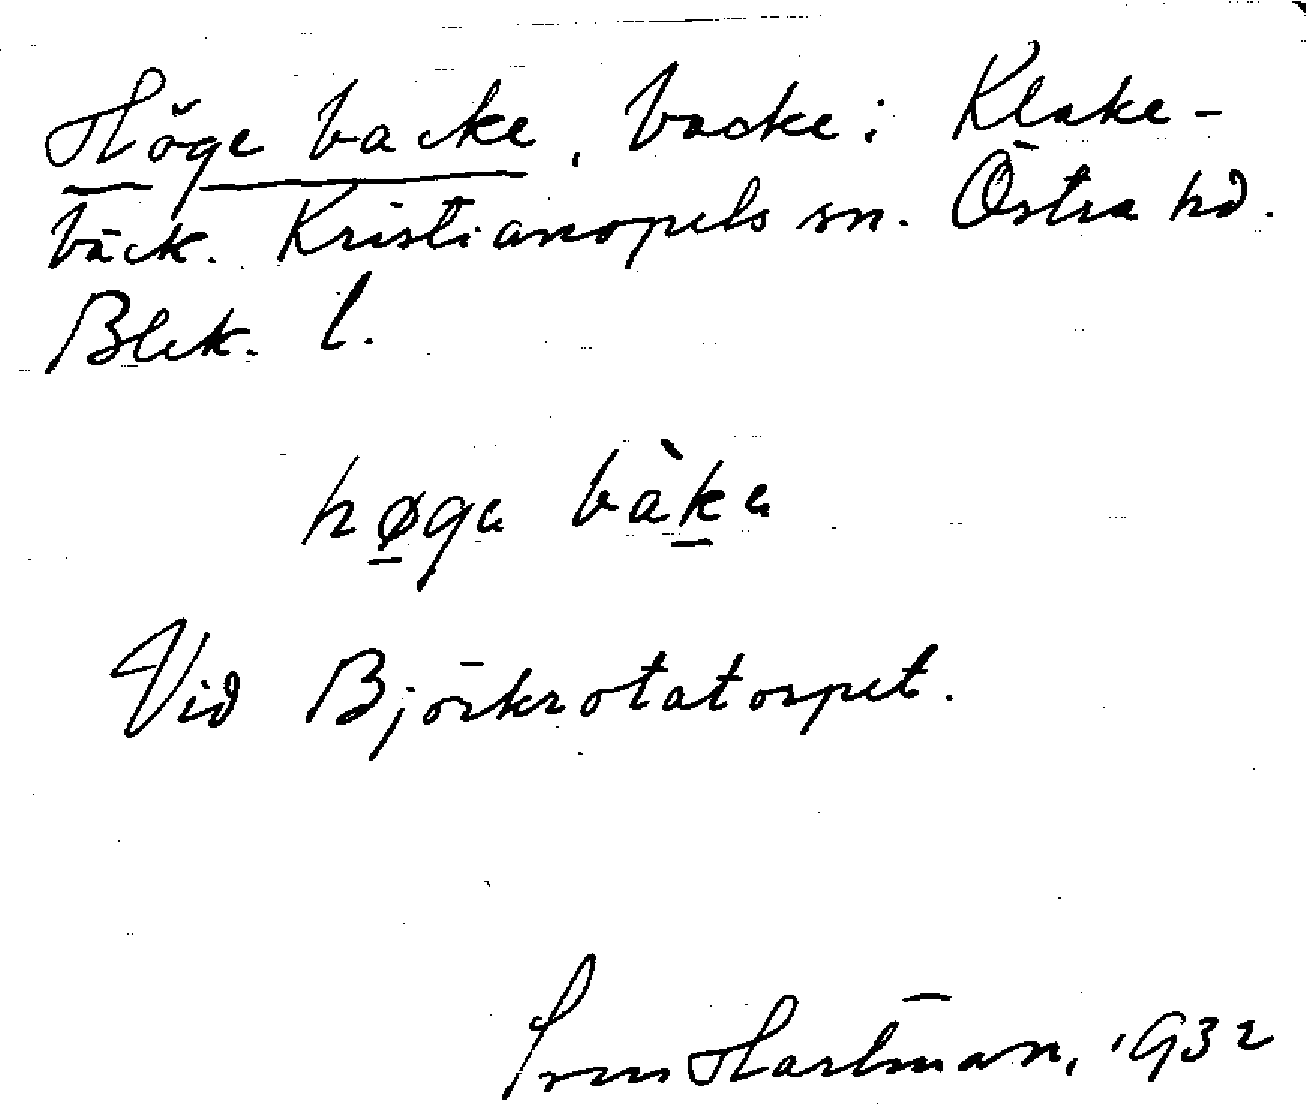 Höge backe, backe i Klake-
bäck. Kristianopels sn. Östra hd.
Blek. l.
høga bàka
Vid Björkrotatorpet.
Hartman, 1932